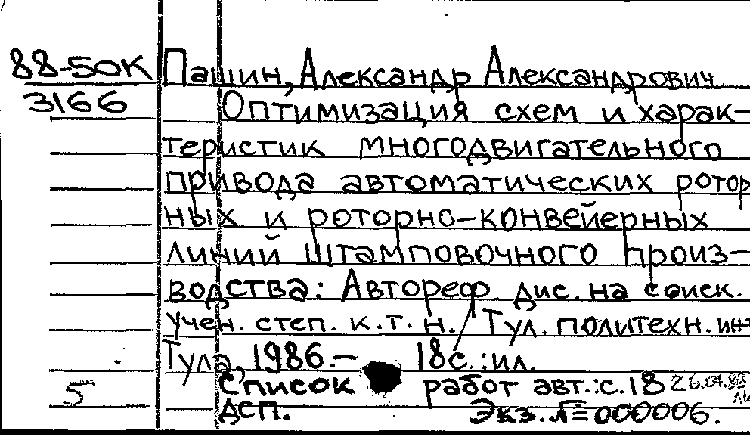 88-50К Пашин, Александр Александрович
3166 Оптимизация схем и харак-
теристик многодвигательного
привода автоматических ротор
ных и роторно-конвейерных
линий штамповочного произ-
водства: Автореф дис. на соиск.
учен. степ. к.т.н. / Тул. политехн. ин-т
Тула, 1986.- 18с.:ил.
Список работ авт.:с.18
5 ДСП. Экз.№000006.